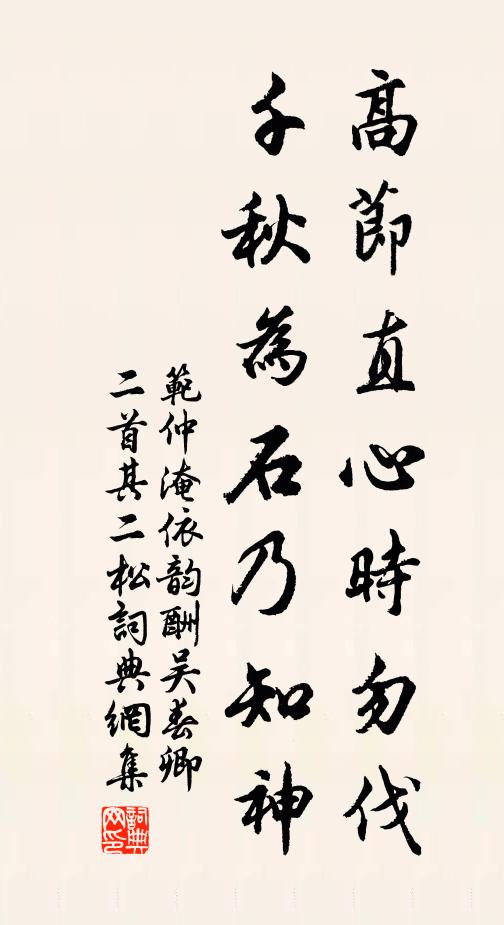 高節直心時勿伐
千秋為石乃知神
範仲淹依韵酬吴春卿
二首其二松詞典網集
詞典網印